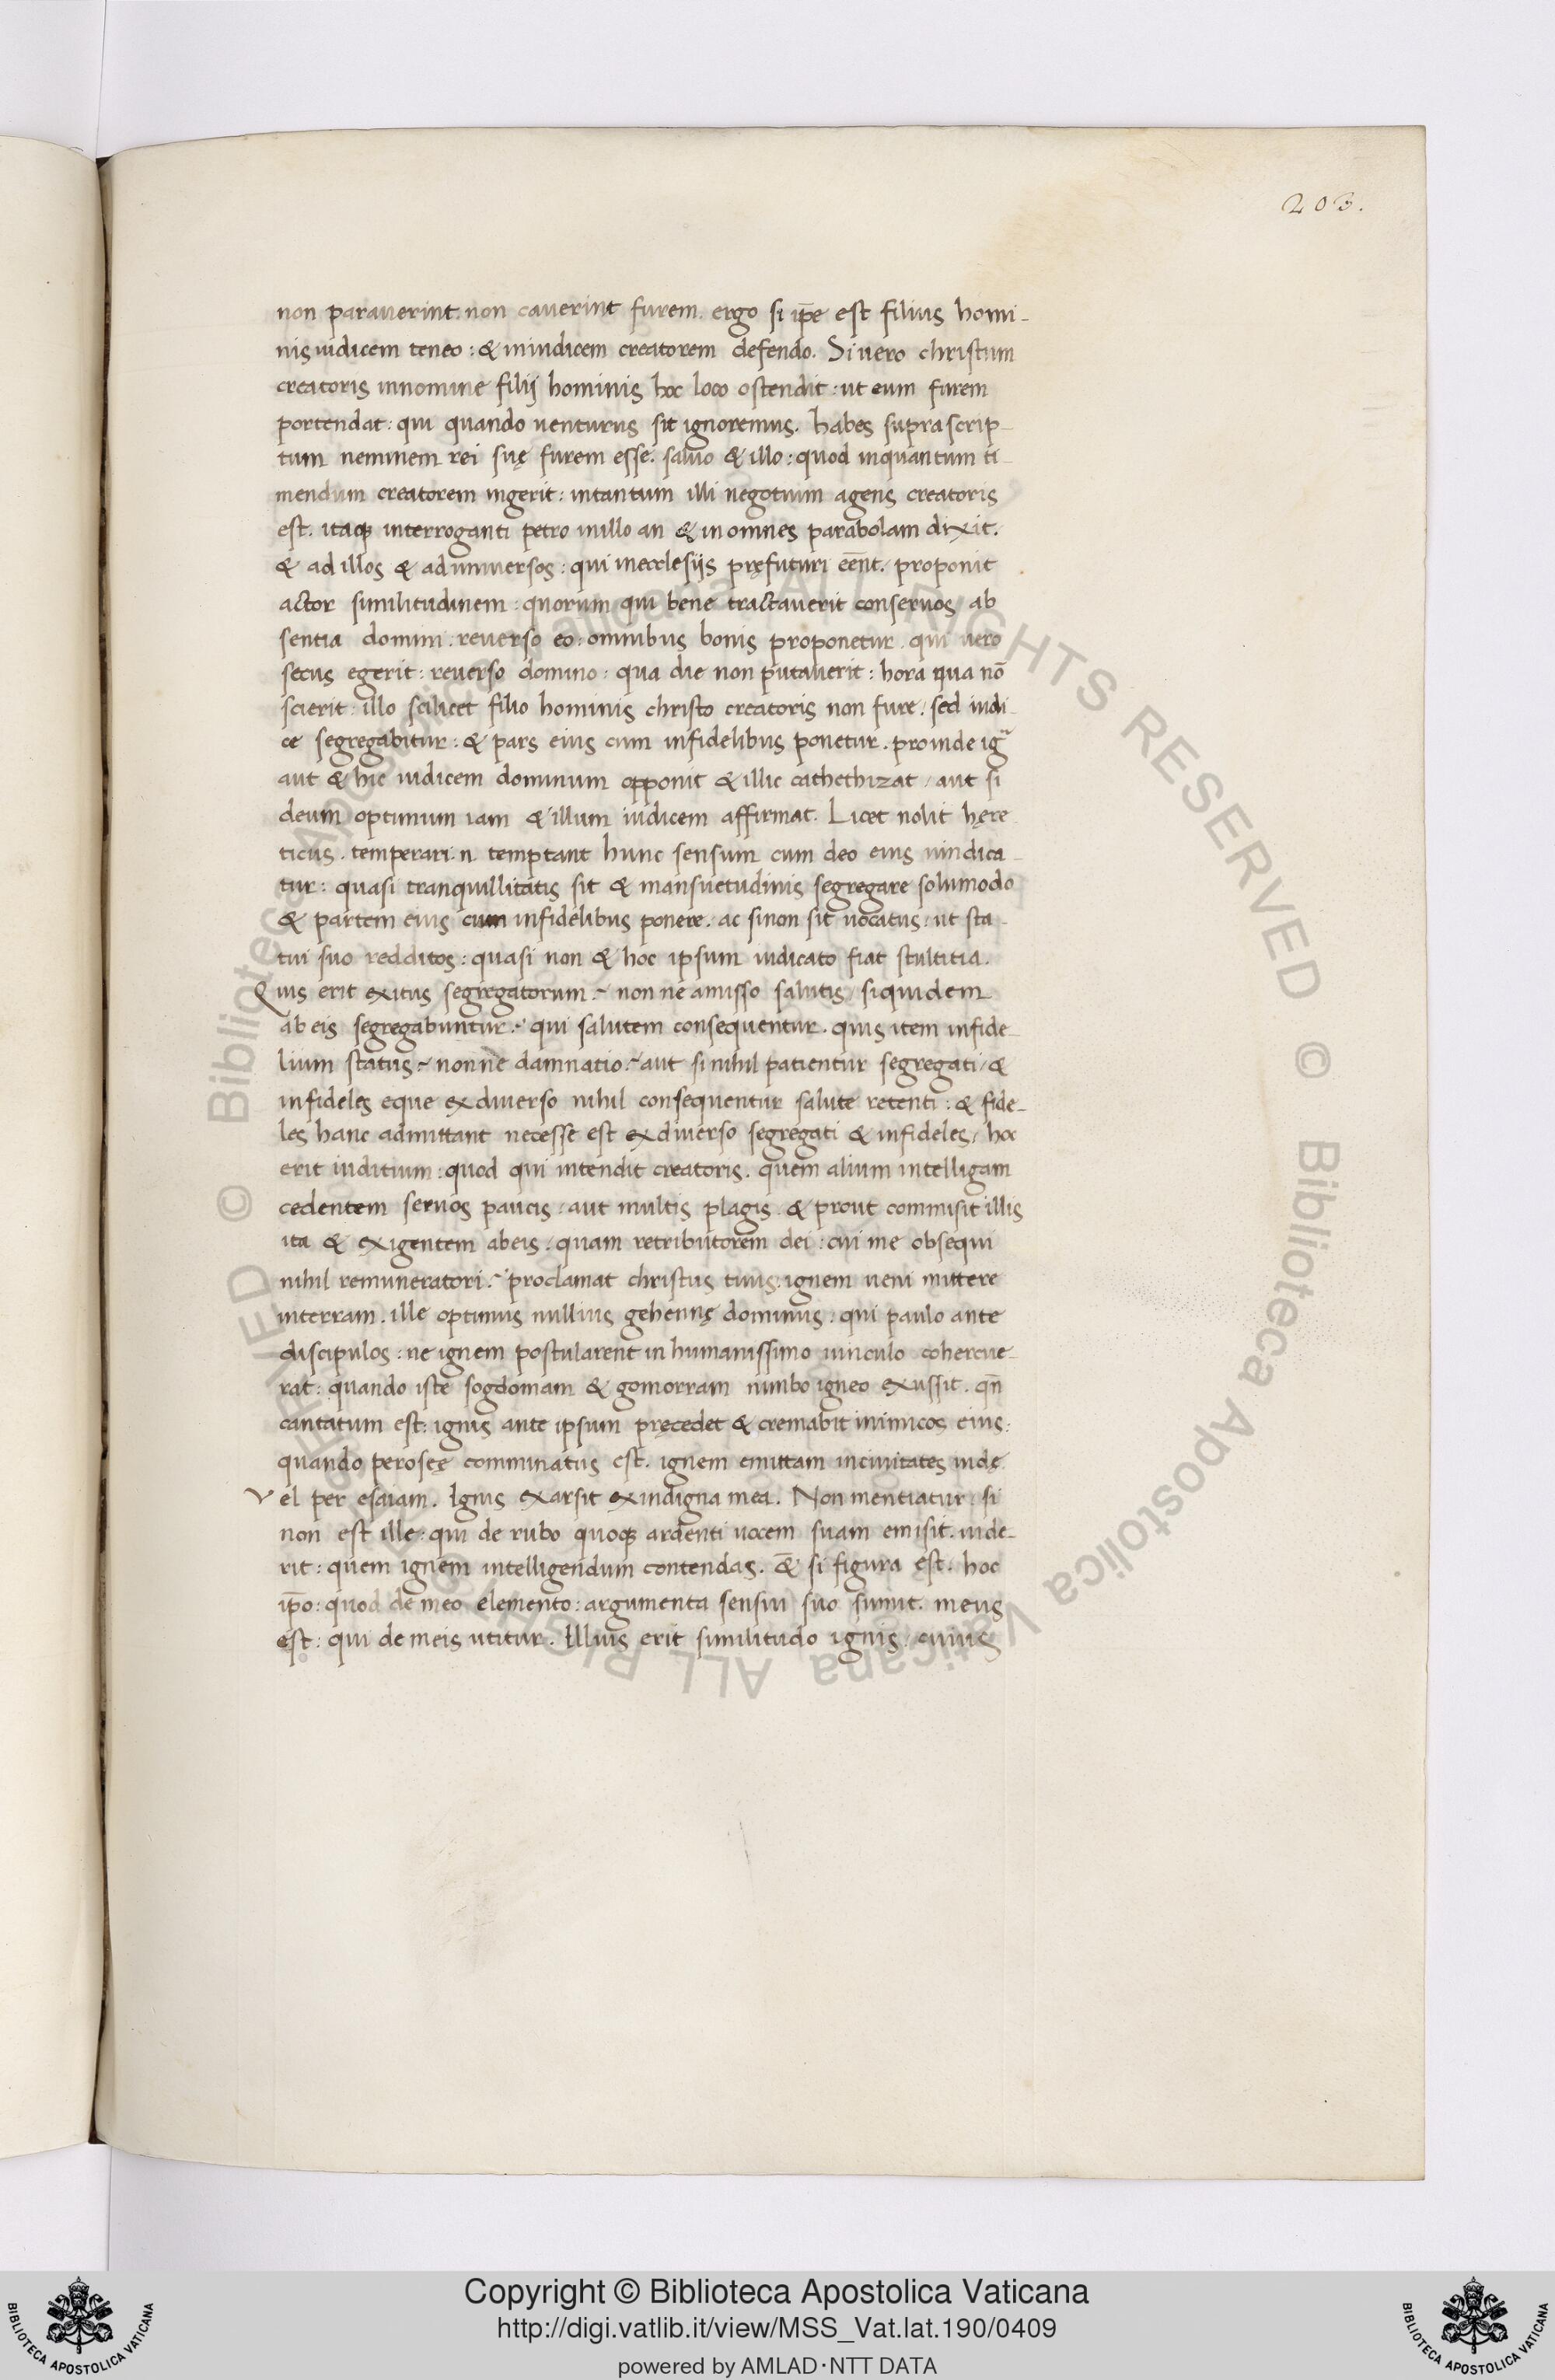 203.
non parauerint. non cauerint furem. ergo si ip̄e est filius homi-
nis iudicem teneo: & iniudicem creatorem defendo. Si uero christum
creatoris innomine filij hominis hoc loco ostendit: ut eum furem
portendat: qui quando uenturus sit ignoremus. habes supra scrip-
tum neminem rei suę furem esse. saluo & illo: quod inquantum ti-
mendum creatorem ingerit: intantum illi negotium agens creatoris
est. itaqꝫ interroganti petro inillo an & in omnes parabolam dixit.
& ad illos & aduniuersos: qui inecclesijs pręfuturi eēnt. proponit
actor similitudinem: quorum qui bene tractauerit conseruos ab
sentia domini: reuerso eo: omnibus bonis proponetur. qui uero
secus egerit: reuerso domino: qua die non putauerit: hora qua nō
scierit: illo scilicet filio hominis christo creatoris non fure / sed iudi-
ce segregabitur: & pars eius cum infidelibus ponetur. proinde igͬ
aut & hic iudicem dominum opponit & illic cathethizat / aut si
deum optimum iam & illum iudicem affirmat. Licet nolit hęre
ticus. temperari. n temptant hunc sensum cum deo eius uindica-
tur: quasi tranquillitatis sit & mansuetudinis segregare solumodo
& partem eius cum infidelibus ponere. ac sinon sit uocatus: ut sta-
tui suo redditos: quasi non & hoc ipsum iudicato fiat stultitia.
Quis erit exitus segregatorum? non ne amisso salutis / siquidem
ab eis segregabuntur? qui salutem consequentur. quis item infide-
lium status? nonne damnatio? aut si nihil patientur segregati / &
infideles eque exdiuerso nihil consequentur salute retenti: & fide-
les hanc admittant necesse est exdiuerso segregati & infideles / hoc
erit iuditium: quod qui intendit creatoris. quem alium intelligam
cedentem seruos paucis / aut multis plagis. & prout commisit illis
ita & exigentem abeis: quam retributorem dei: cui me obsequi
nihil remuneratori? proclamat christus tuus: ignem ueni mittere
interram. ille optimus nullius gehennę dominus: qui paulo ante
discipulos: ne ignem postularent in humanissimo uinculo cohercue-
rat: quando iste sogdomam & gomorram nimbo igneo exussit. qn̄
cantatum est: ignis ante ipsum pręcedet & cremabit inimicos eius:
quando peroseę comminatus est. ignem emittam inciuitates iudę.
Vel per esaiam. Ignis exarsit exindigna mea. Non mentiatur: si
non est ille: qui de rubo quoqꝫ ardenti uocem suam emisit. uide-
rit: quem ignem intelligendum contendas. & si figura est. hoc
ip̄o: quod de meo elemento: argumenta sensui suo sumit. meus
est: qui de meis utitur. Illius erit similitudo ignis / cuius
Copyright © Biblioteca Apostolica Vaticana
http://digi.vatlib.it/view/MSS_Vat.lat.190/0409
powered by AMLAD·NTT DATA
BIBLIOTECA APOSTOLICA VATICANA
BIBLIOTECA APOSTOLICA VATICANA
© Biblioteca Apostolica Vaticana ALL RIGHTS RESERVED © Biblioteca Apostolica Vaticana ALL RIGHTS RESERVED